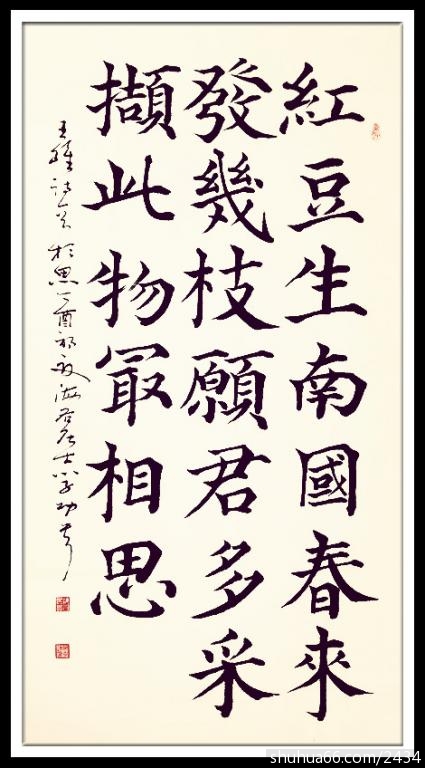 紅豆生南國春來
發幾枝願君多采
擷此物冣相思
王維詩意
shuhua66.com/2434